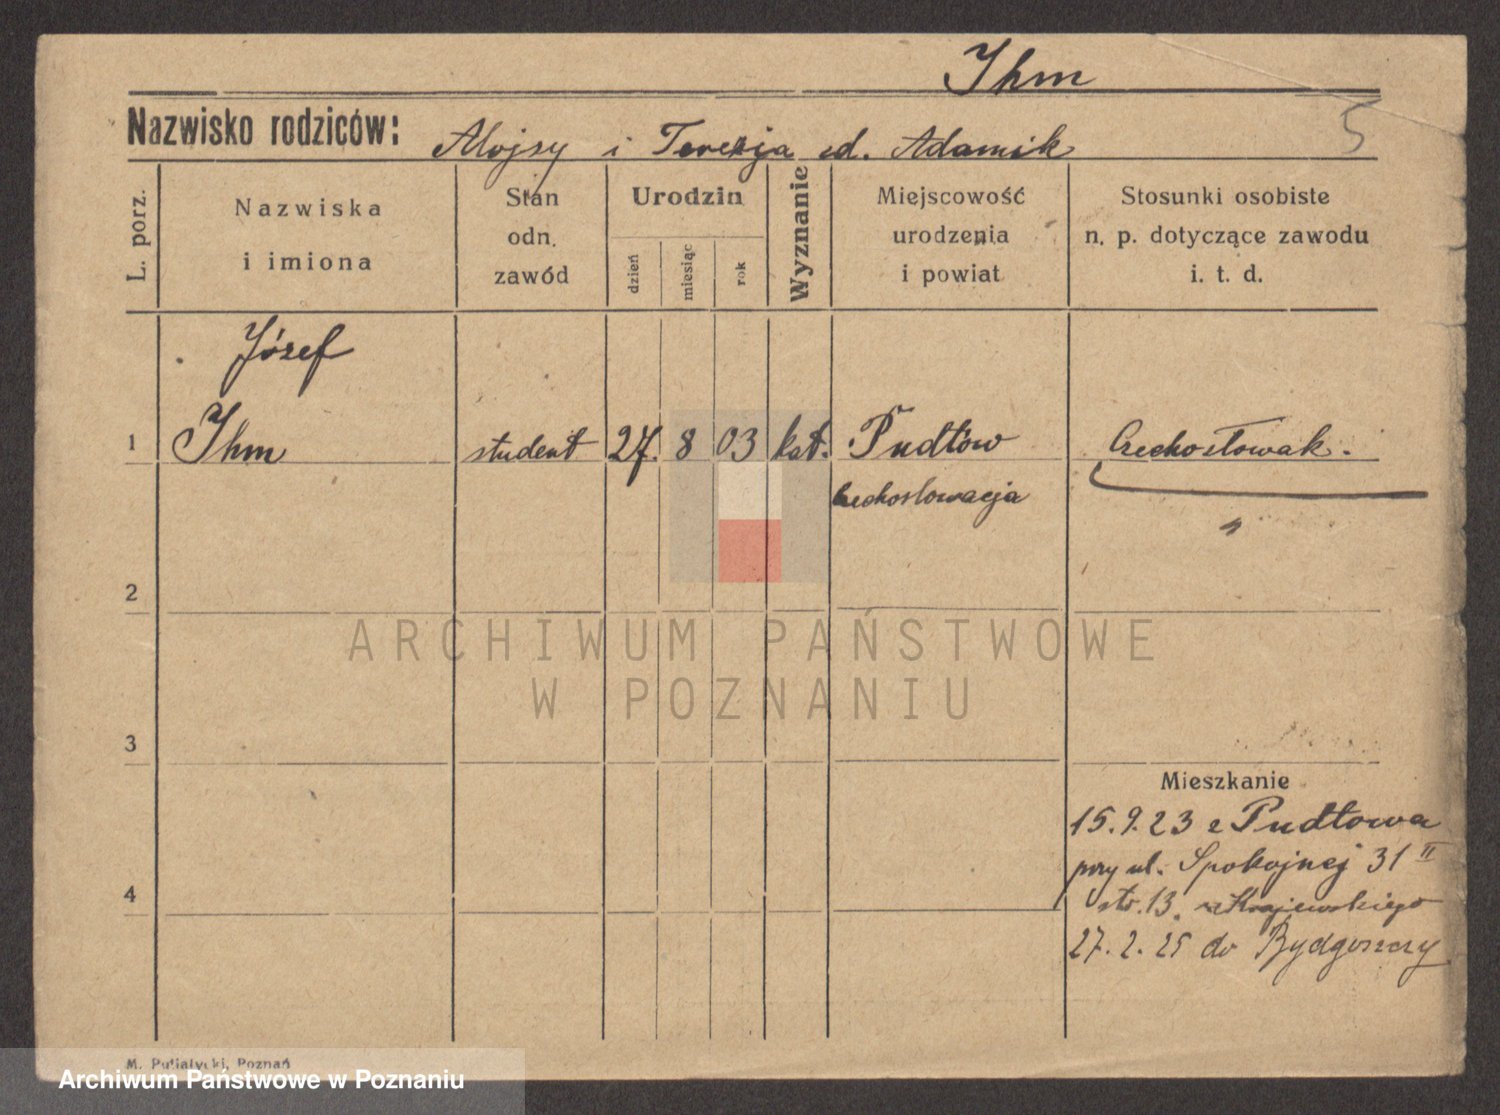 Ihm
5
Nazwisko rodziców: Alojsy i Terezja ed. Adamik
L. porz.
Nazwiska
i imiona
Stan
odn.
zawód
Urodzin
dzień
miesiąc
rok
Wyznanie
Miejscowość
urodzenia
i powiat
Stosunki osobiste
n. p. dotyczące zawodu
i. t. d.
Józef
1 Ihm student 27. 8 03 kat. Pudłów Czechosłowak.
Czechoslowacja
2
ARCHIWUM PAŃSTWOWE
W POZNANIU
3
Mieszkanie
15.9.23 z Pudłowa
przy ul. Spokojnej 31 II
4
str. 13. Krajewskiego
27.2.25 do Bydgoszczy
M. Putiatycki, Poznań
Archiwum Państwowe w Poznaniu